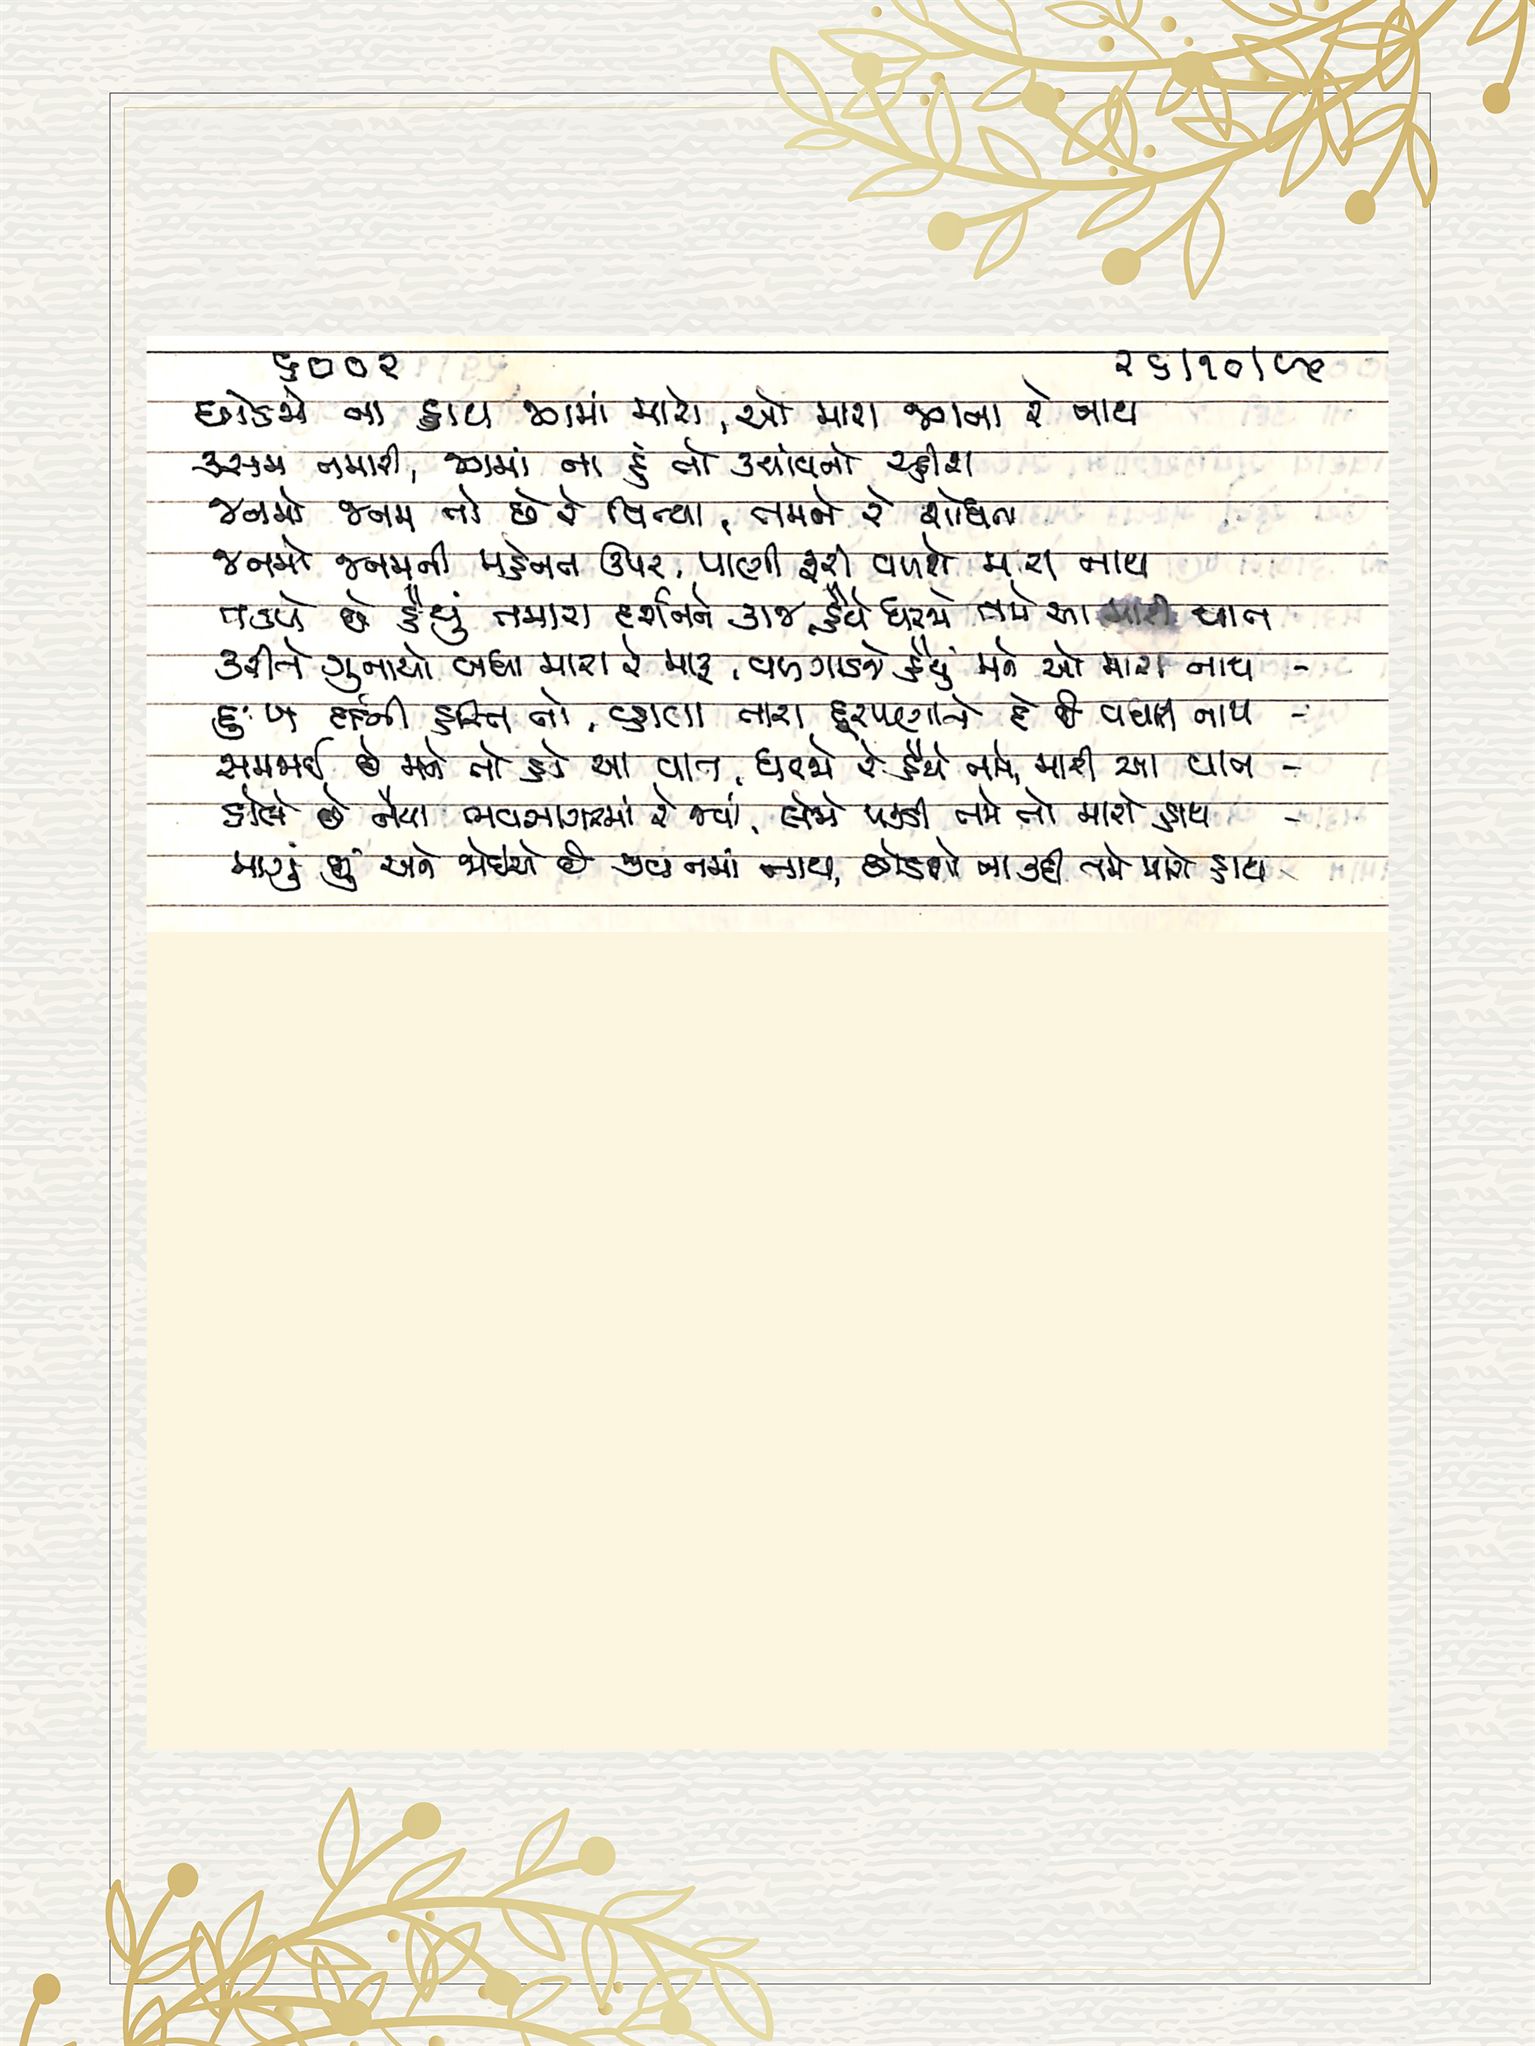 ૬૦૦૨ ૨૬/૧૦/૯૫
છોડજો ના હાથ જગમાં મારો, ઓ મારા જગના રે નાથ
કસમ તમારી, જગમાં ના હું તો ક્યાંયનો રહીશ
જનમો જનમ તો છે રે વિત્યા, તમને રે શોધતા
જનમો જનમની મહેનત ઉપર, પાણી ફરી વળશે મારા નાથ
તડપે છે હૈયું તમારા દર્શનને કાજ, હૈયે ધરજો તમે આ વાત
કરીને ગુનાઓ બધા મારા રે માફ, વળગાડજે હૈયું મને ઓ મારા નાથ -
દુઃખ દર્દની હસ્તિ તો, વ્હાલા તારા દૂરપણાને દે છે વધારી નાથ -
સમજાઈ છે મને તો હવે આ વાત, ધરજો રે હૈયે તમે, મારી આ વાત -
ડોલે છે નૈયા ભવસાગરમાં રે જ્યાં, લેજો પકડી તમે તો મારો હાથ -
માગું છું અને જોઈએ છે જીવનમાં સાથ, છોડશો ના કદી તમે મારો હાથ